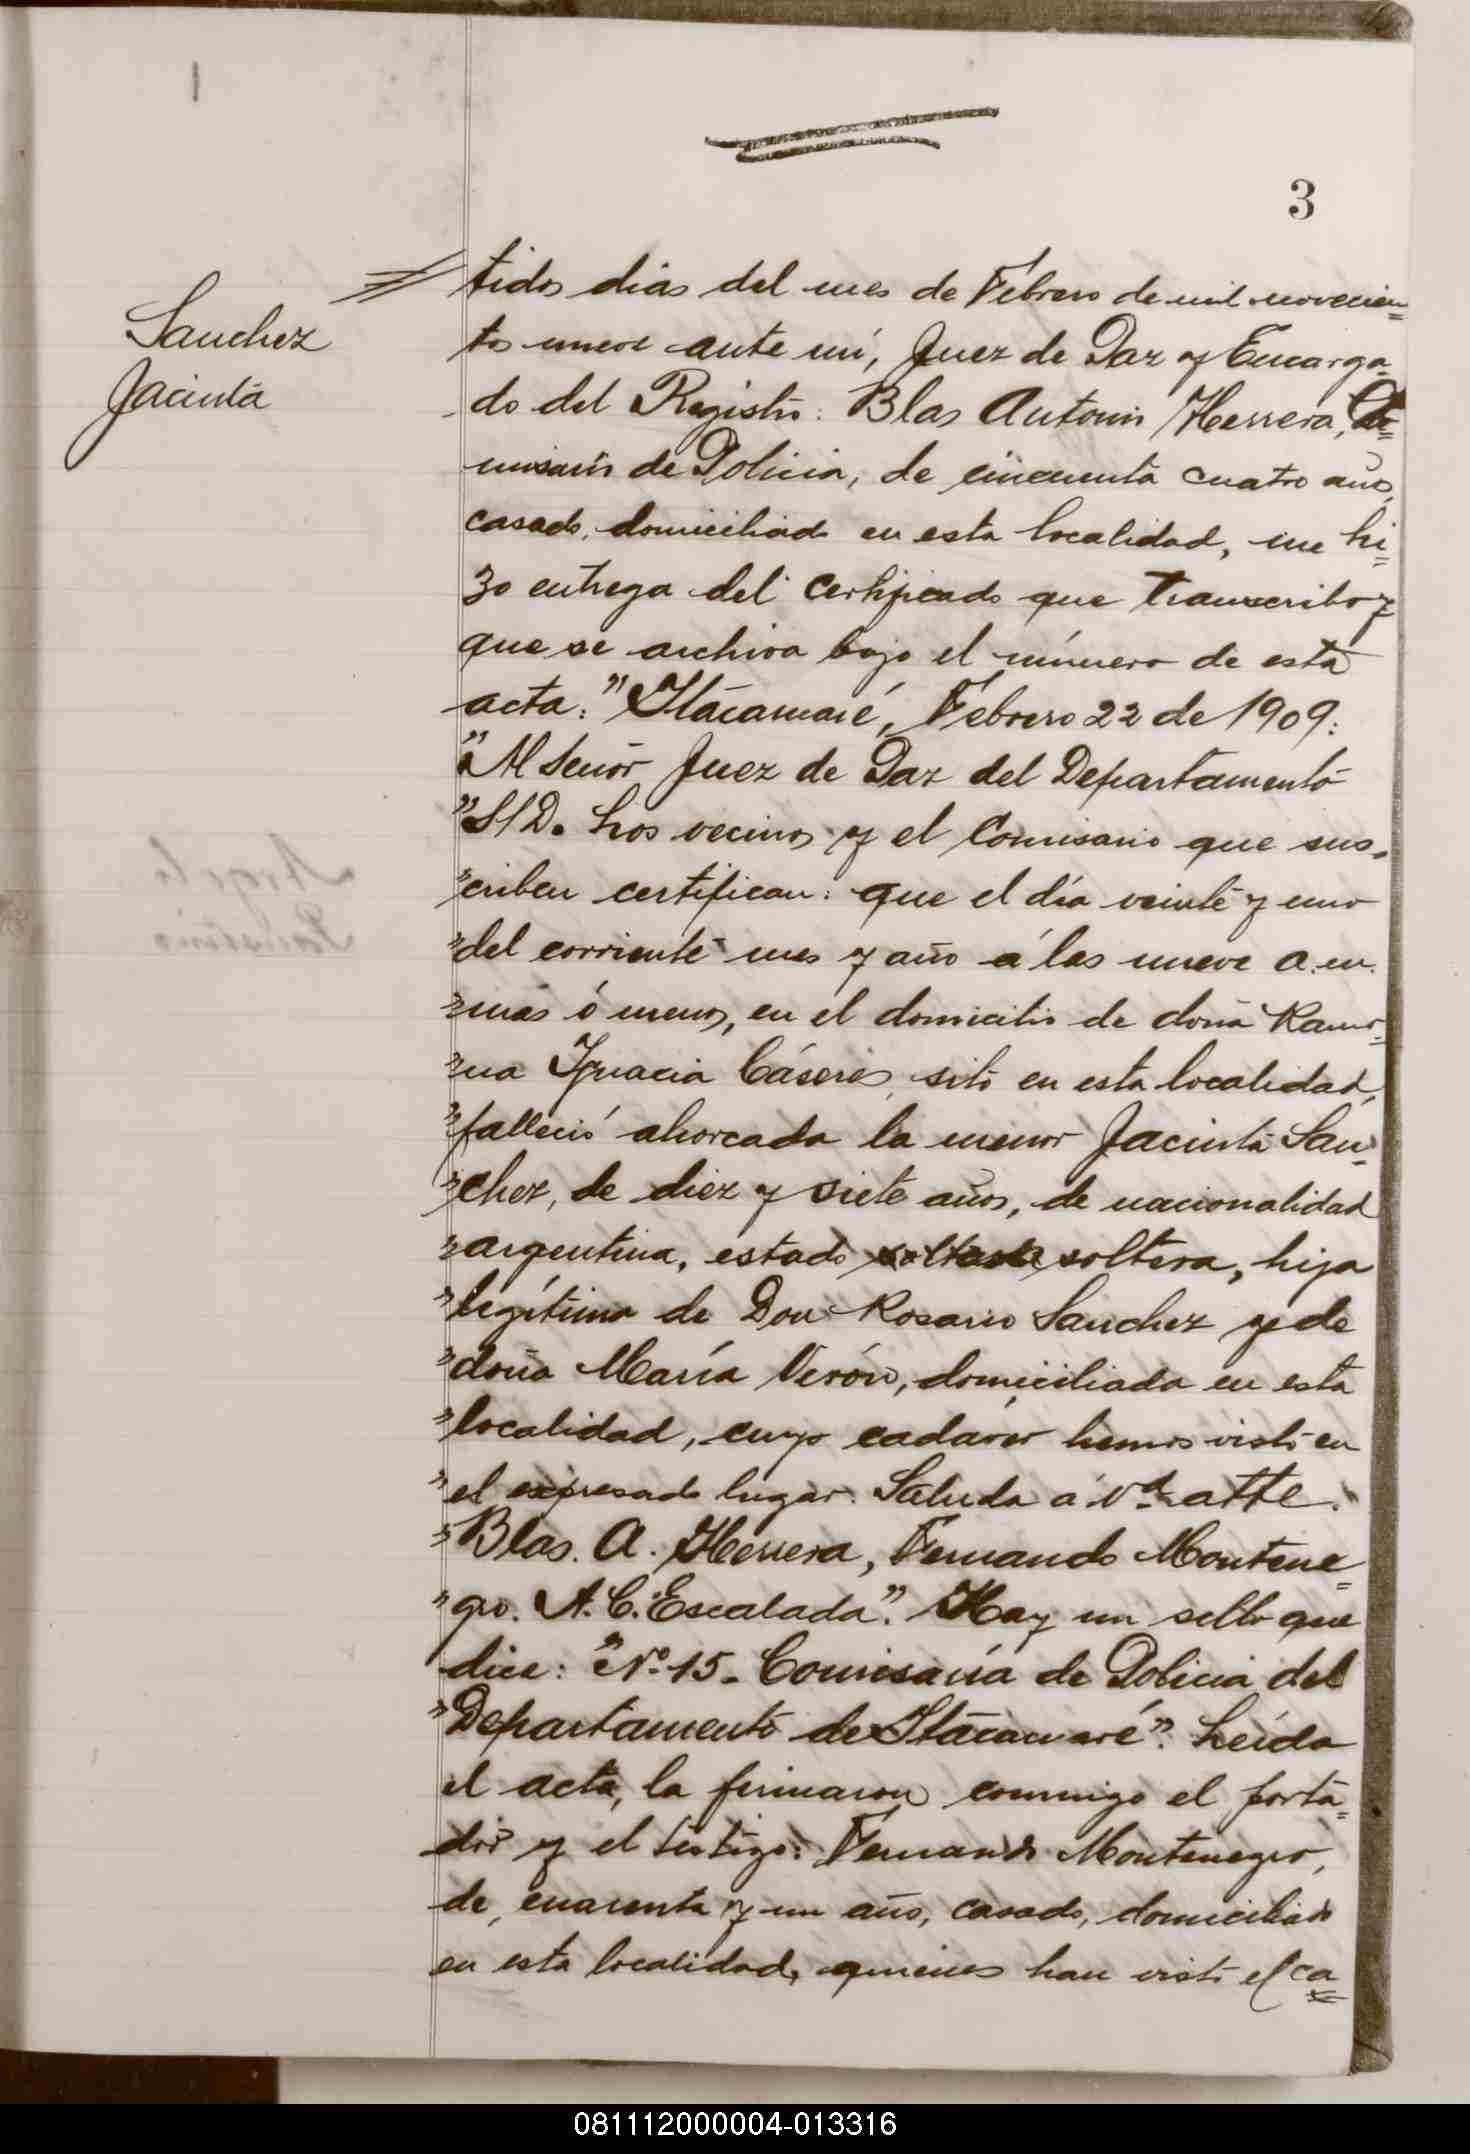 3
Sanchez
Jacinta
tidos dias del mes de Febrero de mil novecien=
tos nueve ante mi, Juez de Paz y Encarga=
do del Registro: Blas Antonio Herrera, Co=
misario de Policia, de cincuenta cuatro años,
casado, domiciliado en esta localidad, me hi=
zo entrega del certificado que transcribo y
que se archiva bajo el número de esta
acta: "Itacaruaré, Febrero 22 de 1909:
"Al Señor Juez de Paz del Departamento
"S/D. Los vecinos y el Comisario que sus=
"criben certifican: que el día veinte y uno
"del corriente mes y año á las nueve a.m.
"más ó menos, en el domicilio de doña Ramo=
"na Ignacia Cáseres, sito en esta localidad,
"falleció ahorcada la menor Jacinta San=
"chez, de diez y siete años, de nacionalidad
"argentina, estado soltera, hija
"legítima de Don Rosario Sanchez y de
"doña María Verón, domiciliada en esta
"localidad, cuyo cadáver hemos visto en
"el expresado lugar. Saluda á Vd. atte.
"Blas. A. Herrera, Fernando Montene=
"gro. A. C. Escalada". Hay un sello que
dice: "Nº 15- Comisaría de Policia del
"Departamento de Itacaruaré". Leída
el acta, la firmaron conmigo el porta=
dor y el testigo: Fernando Montenegro,
de cuarenta y un año, casado, domiciliado
en esta localidad, quienes han visto el ca=
081112000004-013316